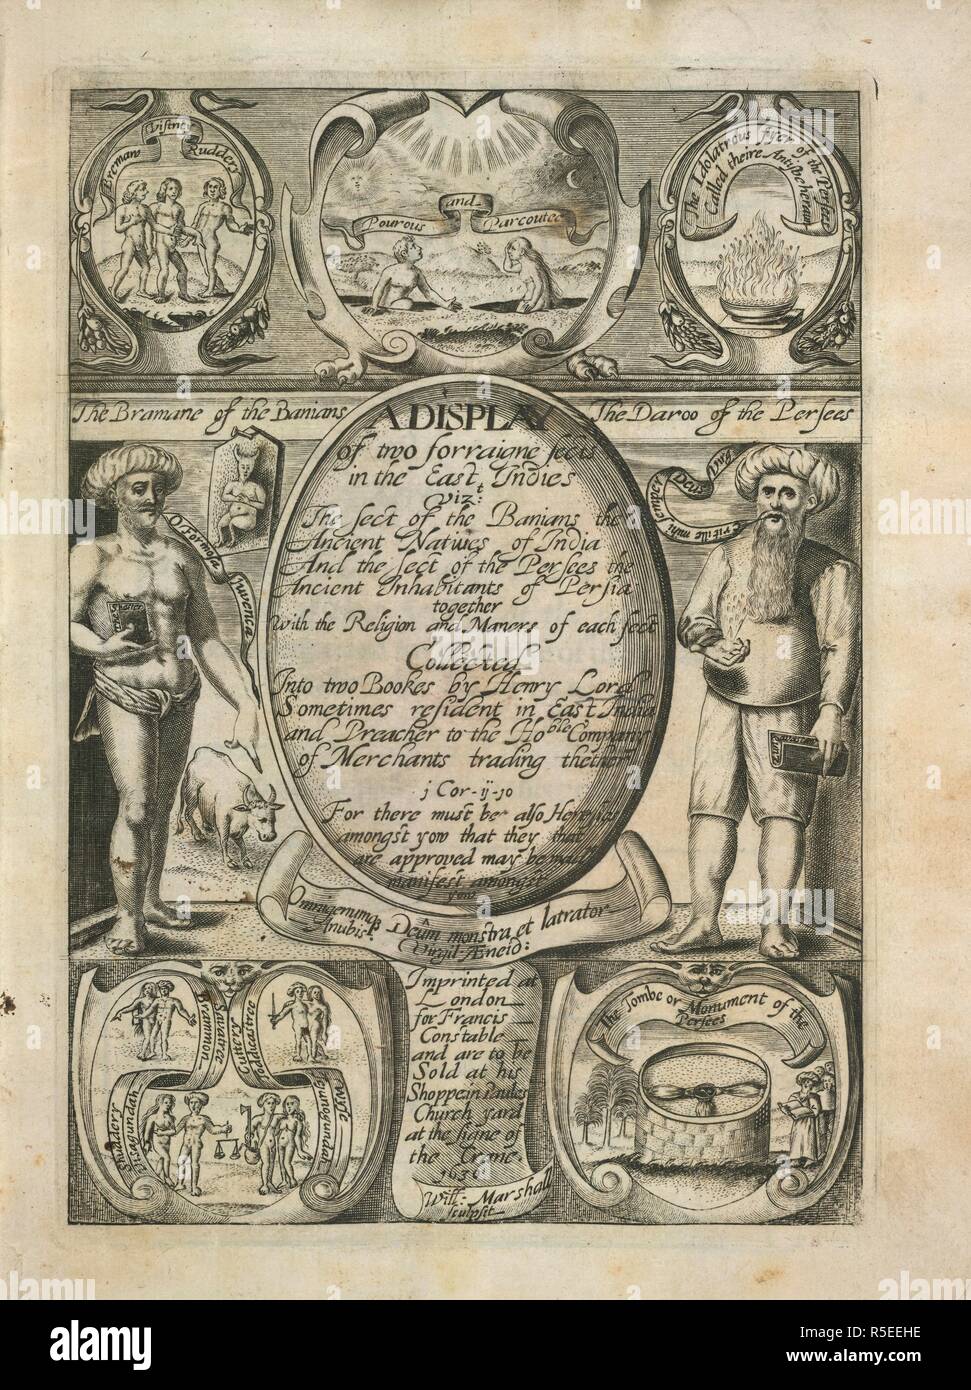 Bremaw
Vistney
Rudders
Pourous
and
Parcoutee
The Idolatrous fyer of the Persees
Called theire Antisbeheraun
The Bramane of the Banians
The Daroo of the Persees
A DISPLAY
of two forraigne sects
in the East Indies
vizt:
The sect of the Banians the
Ancient Natives of India
And the sect of the Persees the
Ancient Inhabitants of Persia
together
With the Religion and Maners of each sect
Collected
Into two Bookes by Henry Lord
Sometimes resident in East India
and Preacher to the Hoble Company
of Merchants trading thether
j Cor-ij-jo
For there must be also Heresies
amongst yow that they that
are approved may be made
manifest amongst
yow
O formosa
Iuvenca
Shaster
Erit ille mihi semper
Deus
Omnigenumq
Deûm monstra et latrator
Anubis
Virgil Æneid:
Brammon
Savatree
Cuttery
Toddicastree
Shuddery
Visagundah
Wyse
Iejunogundah
Imprinted at
London
for Francis
Constable
and are to be
Sold at his
Shoppe in Paules
Church yard
at the signe of
the Crane
1630
Will: Marshall
sculpsit
The Tombe or Monument of the
Persees
alamy
alamy
Image ID: R5EEHE
www.alamy.com